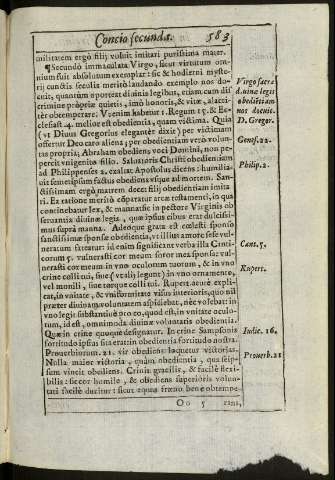 Concio secunda. 583
militatem ergò filij voluit imitari purissima mater.
¶ Secundò immaculata Virgo, sicut virtutum om-
nium fuit absolutum exemplar: sic & hodierni myste-
rij cunctis seculis meritò laudando exemplo nos do-
cuit, quantùm oporteat diuinis legibus, etiam cum dis
crimine propriæ quietis, imò honoris, & vitæ, alacri-
ter obtemperare. Vtenim habetur 1. Regum 15. & Ec-
clesiast. 4. melior est obedientia, quam victima. Quia
(vt Diuus Gregorius elegantèr dixit) per victimam
offertur Deo caro aliena; per obedientiam verò volun-
tas propria; Abraham obediens voci Domini, non pe-
percit vnigenito filio. Saluatoris Christi obedientiam
ad Philippenses 2. exaltat Apostolus dicens: humilia-
uit semetipsum factus obediens vsque ad mortem. San-
ctissimam ergò matrem decet filij obedientiam imita-
ri. Ea ratione meritò cõparatur arcæ testamenti, in qua
concinebatur lex, & manna: sic in pectore Virginis ob
seruantia diuinæ legis, quæ ipsius cibus erat dulcissi-
mus suprà manna. Adeoque grata est cœlesti sponso
sanctissimæ sponsæ obedientia, vt illius amore se se vul-
neratum fateatur: id enim significant verba illa Canti-
corum 5. vulnerasti cor meum soror mea sponsa: vul-
nerasti cor meum in vno oculorum tuorum, & in vno
crine colli tui, siue (vt alij legunt) in vno ornamento,
vel monili, siue torque colli tui. Rupert. autẽ expli-
cat, in vnitate, & vniformitate visus interioris, quo nil
præter diuinam voluntatem aspiciebat, nec volebat: in
vno legit substantiuè pro to, quod est, in vnitate oculo-
tum, id est, omnimoda diuinæ voluntatis obedientia.
Quæ in crine quoque designatur. In crine Sampsonis
fortitudo ipsius sita erat: in obedientia fortitudo nostra.
Prouerbiorum. 21. vir obediens loquetur victorias.
Nulla maior victoria, quàm obedientia, qua seip-
sum vincit obediens. Crinis gracilis, & facilè flexi-
bilis: sic cor humile, & obediens superioris volun-
tati facile ducitur: sicut equus fræno bene obtempe-
Oo 5 rans,
Virgo sacra
diuinæ legis
obedientiam
nos docuit.
D. Gregor.
Genes. 22.
Philip. 2.
Cant. 5.
Rupert.
Iudic. 16.
Prouerb. 21